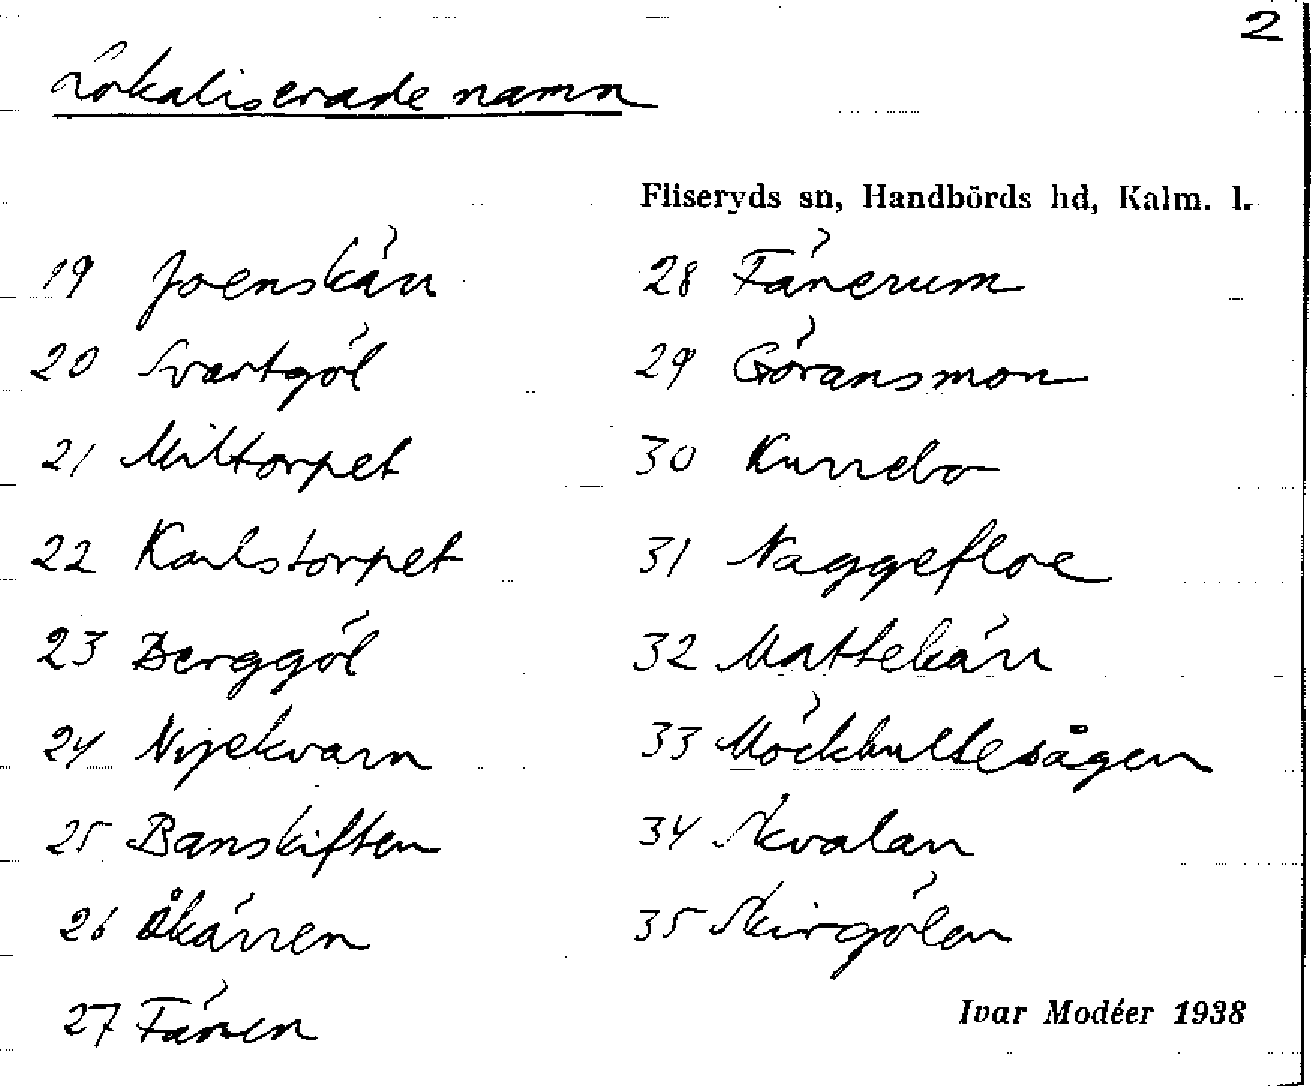 2
Lokaliserade namn
Fliseryds sn, Handbörds hd, Kalm. l.
19 Joenskärr
20 Svartgöl
21 Miltorpet
22 Karlstorpet
23 Berggöl
24 Nyekvarn
25 Banskiften
26 Åkärren
27 Fåren
28 Fårerum
29 Göransmon
30 Kurrebo
31 Naggefloe
32 Mattekärr
33 Möckhultesågen
34 Skvalan
35 Skirgölen
Ivar Modéer 1938